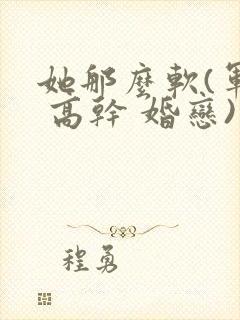 她那麼軟(軍
高幹 婚戀)
程勇